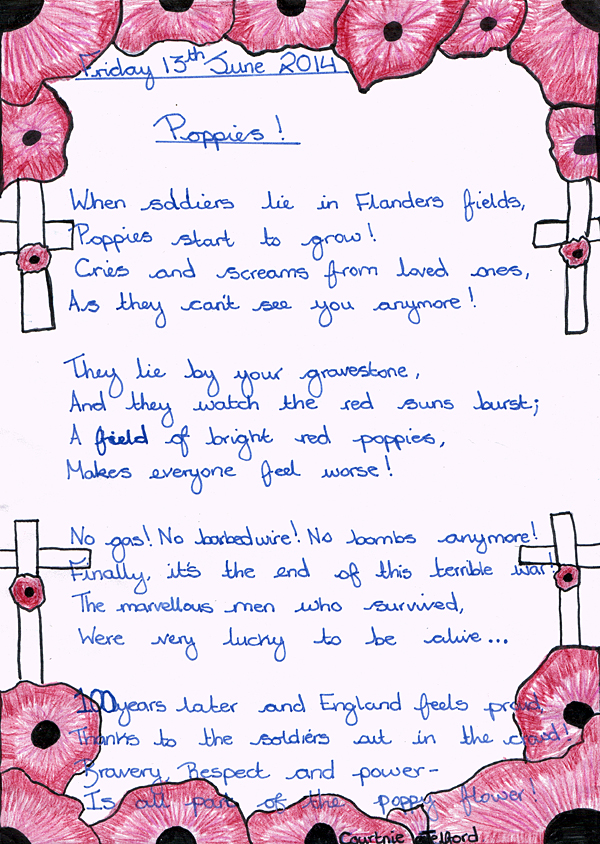 Friday 13th June 2014
Poppies!
When soldiers lie in Flanders fields,
Poppies start to grow!
Cries and screams from loved ones,
As they can't see you anymore!
They lie by your gravestone,
And they watch the red suns burst;
A field of bright red poppies,
Makes everyone feel worse!
No gas! No barbedwire! No bombs anymore!
Finally, it's the end of this terrible war!
The marvellous men who survived,
Were very lucky to be alive...
100 years later and England feels proud,
Thanks to the soldiers out in the cloud!
Bravery, Respect and power-
Is all part of the poppy flower!
Courtnie Telford